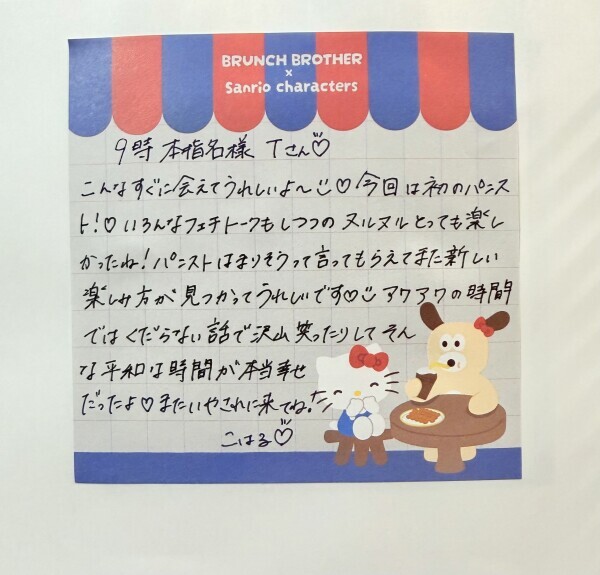 BRUNCH BROTHER
×
Sanrio characters
9時 本指名様 Tさん♡
こんなすぐに会えてうれしいよ〜♡今回は初のパンス
ト!♡いろんなフェチトークもしつつのヌルヌルとっても楽し
かったね!パンストはまりそうって言ってもらえてまた新しい
楽しみ方が見つかってうれしいです♡アワアワの時間
ではくだらない話で沢山笑ったりしてそん
な平和な時間が本当幸せ
だったよ♡またいやされに来てね!
こはる♡